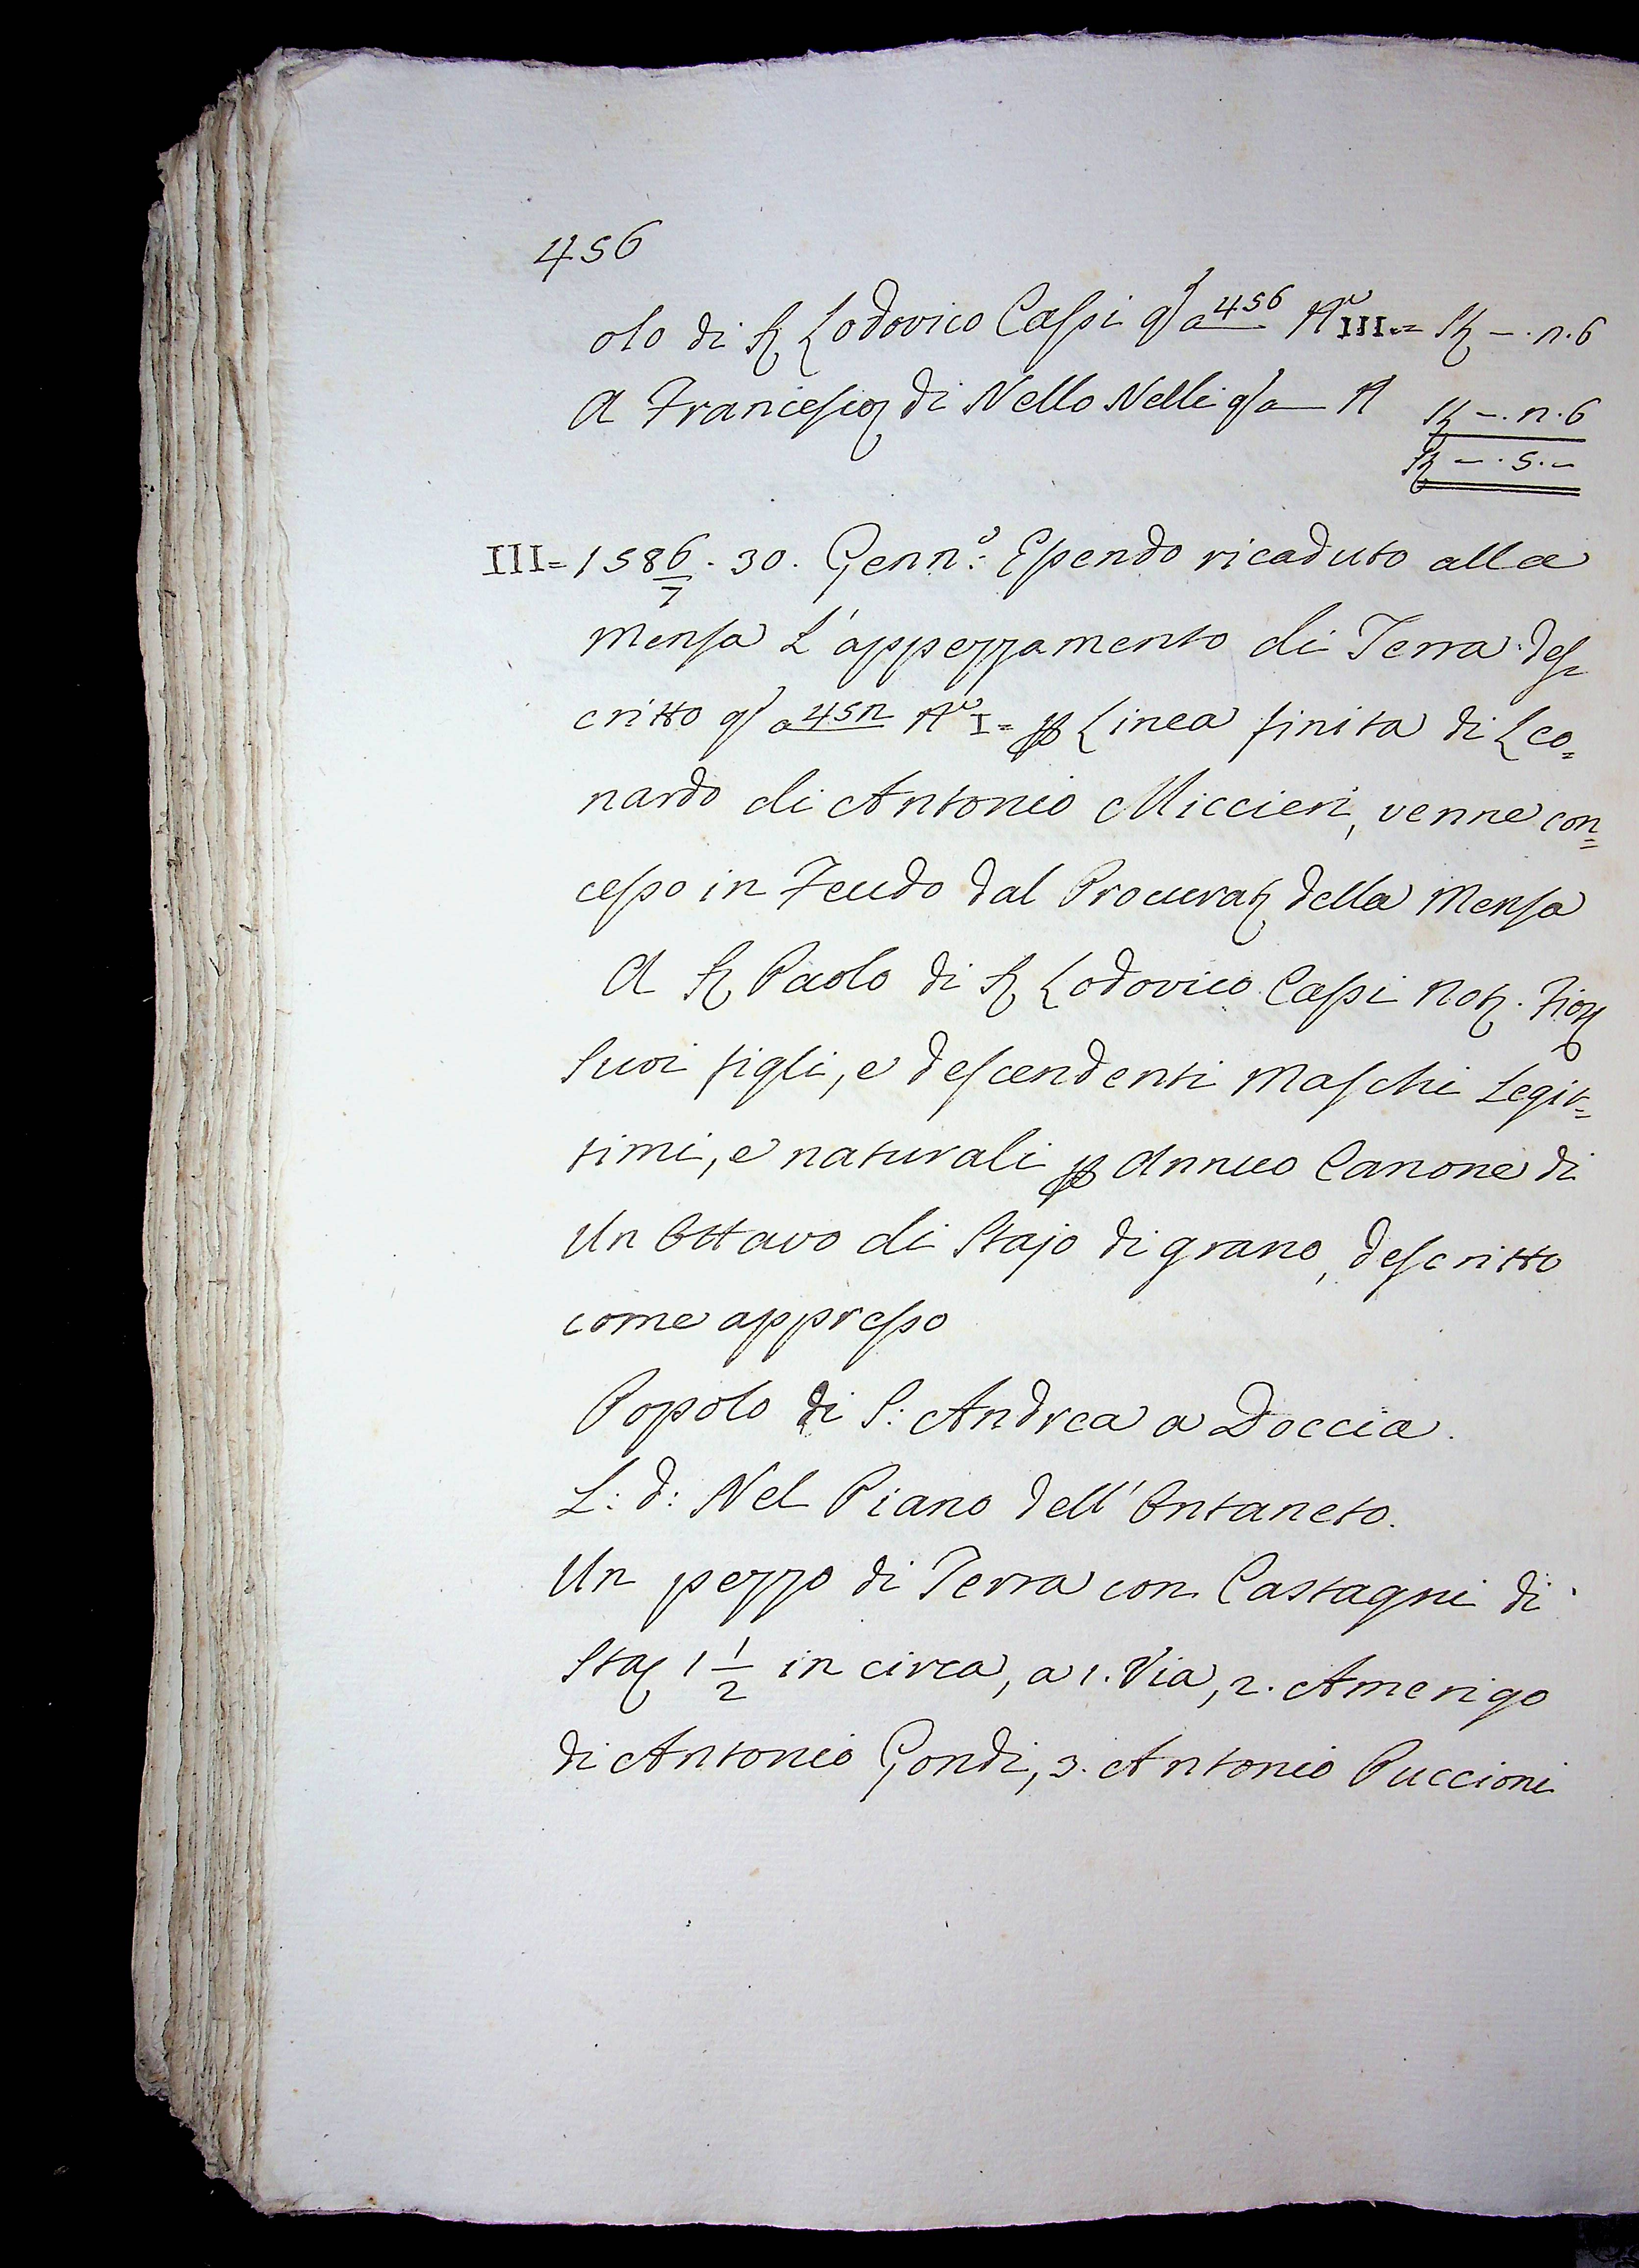 456
olo di Sr Lodovico Cassi qs a 456 No III = St — . 2 . 6
A Francesco di Nello Nelli qs a — N St — . 2 . 6
St — . 5 . —
III = 1586/7 . 30 . Genno: Essendo ricaduto alla
Mensa L'appezzamento di Terra des
critto qs a 452 No I = p Linea finita di Leo=
nardo di Antonio Miccieri, venne con=
cesso in Feudo dal Procurat della Mensa
A Sr Paolo di Sr Lodovico Cassi Not. Fior
Suoi figli, e descendenti Maschi Legit=
timi, e naturali p Annuo Canone di
Un Ottavo di Stajo di grano, descritto
come appresso
Popolo di S: Andrea a Doccia.
L: d: Nel Piano dell'Ontaneto.
Un pezzo di Terra con Castagni di
Sta 1 1/2 in circa, a 1. Via, 2. Amerigo
di Antonio Gondi, 3. Antonio Puccioni